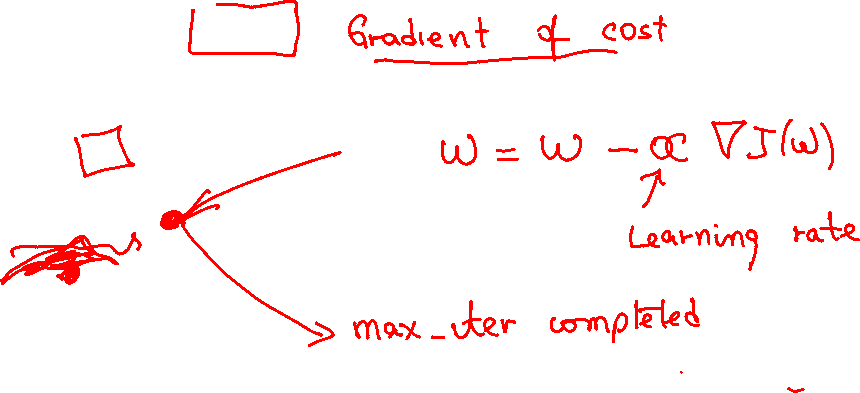 Gradient of cost
w = w - α ∇J(w)
Learning rate
max_iter completed